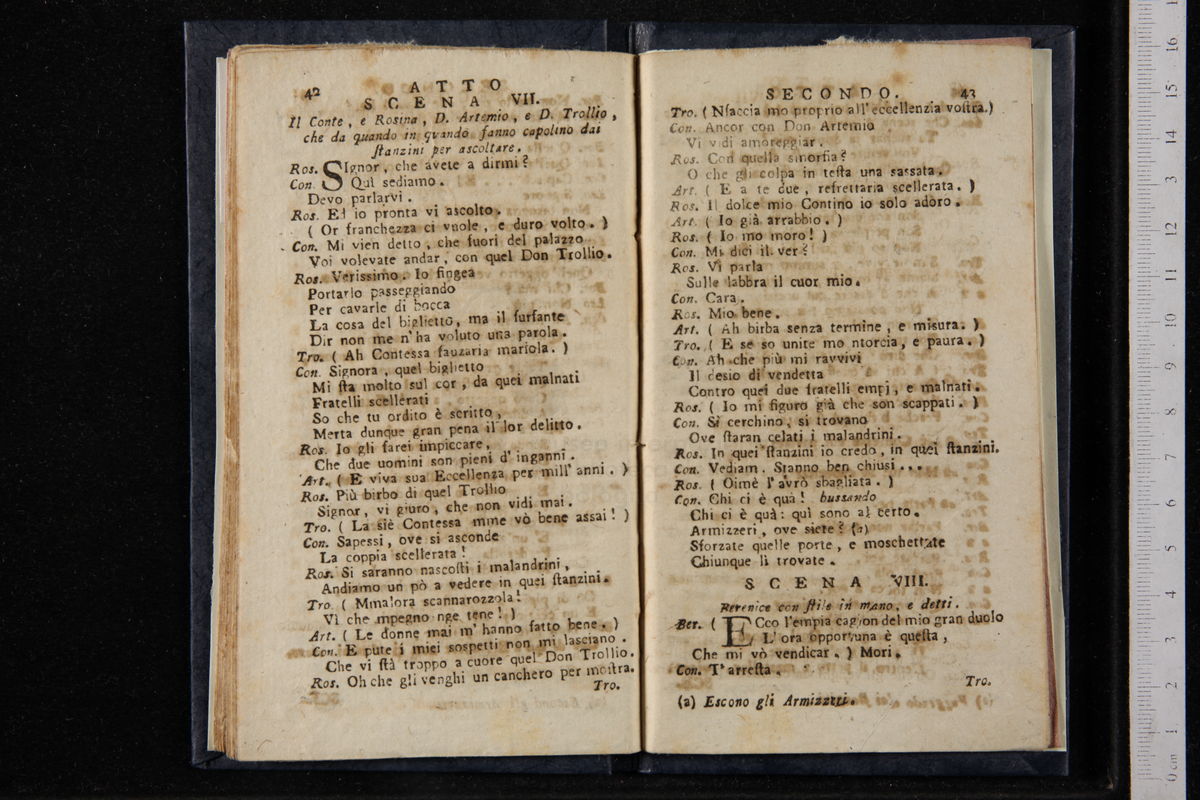 42
ATTO
SCENA VII.
Il Conte, e Rosina, D. Artemio, e D. Trollio,
che da quando in qvando fanno capolino dai
ſtanzini per ascoltare.
Ros. SIgnor, che avete a dirmi?
Con. Quì sediamo.
Devo parlarvi.
Ros. Ed io pronta vi ascolto.
( Or franchezza ci vuole, e duro volto. )
Con. Mi vien detto, che fuori del palazzo
Voi volevate andar, con quel Don Trollio.
Ros. Verissimo. Io fingea
Portarlo passeggiando
Per cavarle di bocca
La cosa del biglietto, ma il furfante
Dir non me n'ha voluto una parola.
Tro. ( Ah Contessa fauzaria mariola. )
Con. Signora, quel biglietto
Mi ſta molto sul cor, da quei malnati
Fratelli scellerati
So che tu ordito è scritto,
Merta dunque gran pena il lor delitto.
Ros. Io gli farei impiccare,
Che due uomini son pieni d' inganni.
Art. ( E viva sua Eccellenza per mill' anni. )
Ros. Più birbo di quel Trollio
Signor, vi giuro, che non vidi mai.
Tro. ( La siè Contessa mme vò bene assai! )
Con. Sapessi, ove si asconde
La coppia scellerata!
Ros. Si saranno nascoſti i malandrini,
Andiamo un pò a vedere in quei ſtanzini.
Tro. ( Mmalora scannarozzola!
Vì che mpegno nge tene! )
Art. ( Le donne mai m' hanno fatto bene. )
Con. E pute i miei sospetti non mi lasciano.
Che vi ſtà troppo a cuore quel Don Trollio.
Ros. Oh che gli venghi un canchero per moſtra.
Tro.
SECONDO.
43
Tro. ( Nfaccia mo proprio all' eccellenzia voſtra.)
Con. Ancor con Don Artemio
Vi vidi amoreggiar.
Ros. Con quella smorfia?
O che gli colpa in teſta una sassata.
Art. ( E a te due, refrettaria scellerata. )
Ros. Il dolce mio Contino io solo adoro.
Art. ( Io già arrabbio. )
Ros. ( Io mo moro! )
Con. Mi dici il ver?
Ros. Vi parla
Sulle labbra il cuor mio.
Con. Cara.
Ros. Mio bene.
Art. ( Ah birba senza termine, e misura. )
Tro. ( E se so unite mo ntorcia, e paura. )
Con. Ah che più mi ravvivi
Il desio di vendetta
Contro quei due fratelli empj, e malnati.
Ros. ( Io mi figuro già che son scappati. )
Con. Sì cerchino, si trovano
Ove ſtaran celati i malandrini.
Ros. In quei ſtanzini io credo, in quei ſtanzini.
Con. Vediam. Stanno ben chiusi...
Ros. ( Oimè l' avrò sbagliata. )
Con. Chi ci è quà! bussando
Chi ci è quà: quì sono al certo.
Armizzeri, ove siete? (a)
Sforzate quelle porte, e moschettate
Chiunque lì trovate.
SCENA VIII.
Berenice con ſtile in mano, e detti.
Ber. ( ECco l'empia cagion del mio gran duolo
L' ora opportuna è queſta,
Che mi vò vendicar. ) Mori.
Con. T' arreſta.
Tro.
(a) Escono gli Armizzeri.